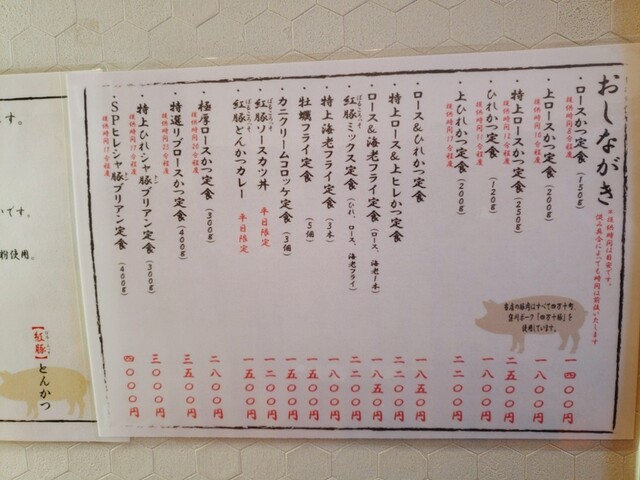 おしながき
※提供時間は目安です。
混み具合によっても時間は前後いたします
・ロースかつ定食（150g）
提供時間8分程度
一四〇〇円
・上ロースかつ定食（200g）
提供時間10分程度
一八〇〇円
・特上ロースかつ定食（250g）
提供時間12分程度
二五〇〇円
・ひれかつ定食（120g）
提供時間11分程度
一八〇〇円
・上ひれかつ定食（200g）
提供時間15分程度
二二〇〇円
当店の豚肉はすべて四万十町、
窪川ポーク「四万十豚」を
使用しています。
・ロース&ひれかつ定食
一八五〇円
・特上ロース&上ヒレかつ定食
二二〇〇円
・ロース&海老フライ定食（ロース、海老1本）
一八五〇円
・紅豚ミックス定食（ひれ、ロース、海老フライ）
二二〇〇円
・特上海老フライ定食（3本）
一八〇〇円
・牡蠣フライ定食（5個）
一五〇〇円
・カニクリームコロッケ定食（3個）
一五〇〇円
・紅豚ソースカツ丼 平日限定
一二〇〇円
・紅豚とんかつカレー 平日限定
一五〇〇円
・極厚ロースかつ定食（300g）
提供時間20分程度
二八〇〇円
・特選リブロースかつ定食（400g）
提供時間25分程度
三五〇〇円
・特上ひれシャ豚ブリアン定食（300g）
提供時間17分程度
三〇〇〇円
・SPヒレシャ豚ブリアン定食（400g）
提供時間17分程度
四〇〇〇円
ます。
いです。
粉使用。
【紅豚】とんかつ